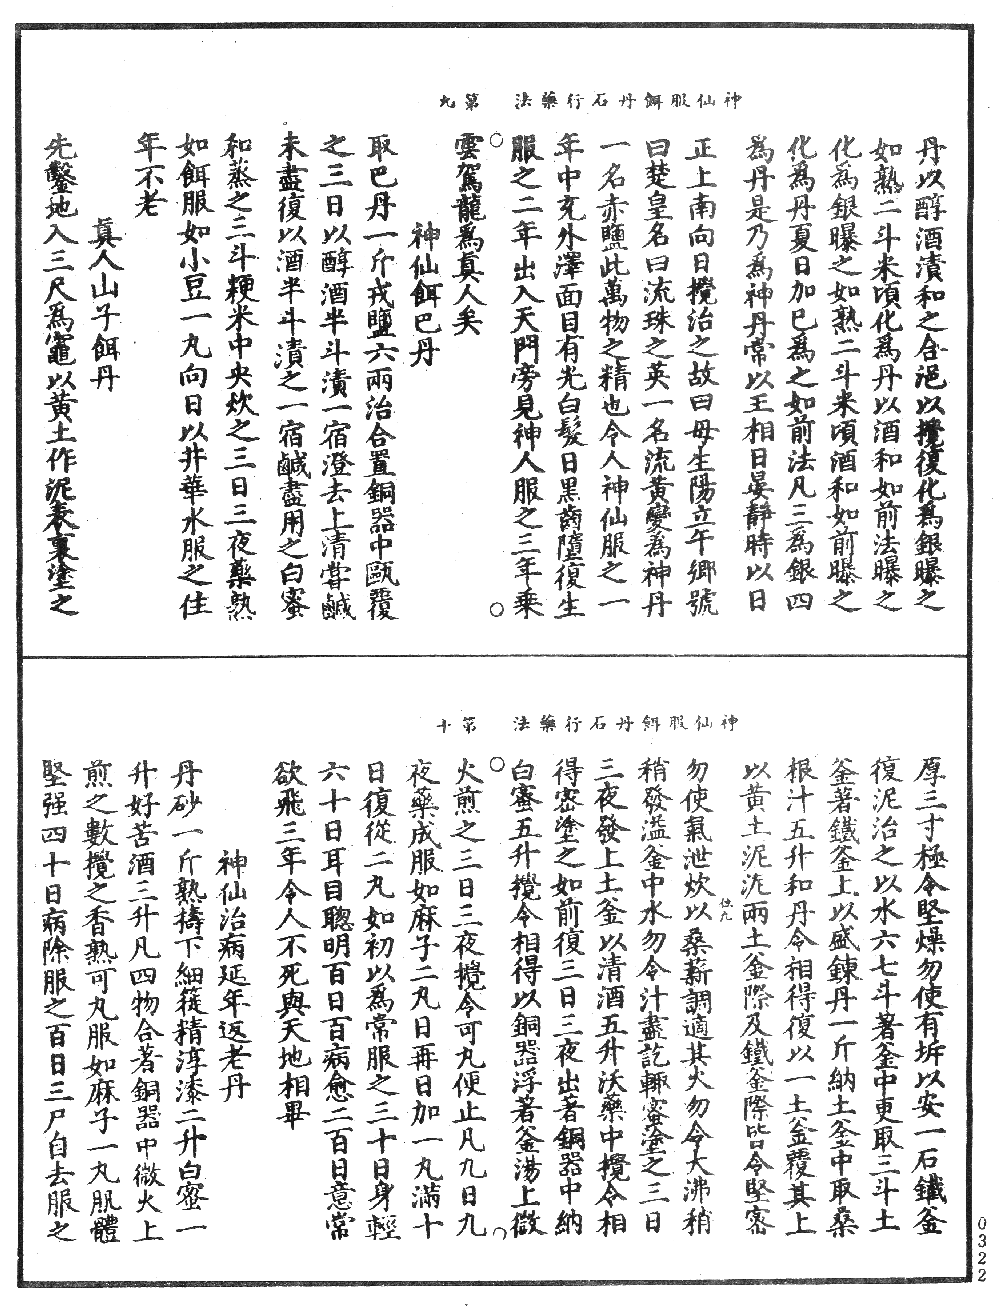 神仙服餌丹石行藥法　第九
丹以醇酒漬和之合浥以攪復化爲銀曝之
如熟二斗米頃化爲丹以酒和如前法曝之
化爲銀曝之如熟二斗米頃酒和如前曝之
化爲丹夏日加巳爲之如前法凡三爲銀四
爲丹是乃爲神丹常以王相日晏靜時以日
正上南向日攪治之故曰母生陽立午鄉號
曰楚皇名曰流珠之英一名流黃變爲神丹
一名赤鹽此萬物之精也令人神仙服之一
年中充外澤面目有光白髮日黑齒墮復生
服之二年出入天門旁見神人服之三年乘
雲駕龍爲真人矣
神仙餌巴丹
取巴丹一斤戎鹽六兩治合置銅器中甌覆
之三日以醇酒半斗漬一宿澄去上清嘗鹹
未盡復以酒半斗漬之一宿鹹盡用之白蜜
和蒸之三斗粳米中央炊之三日三夜藥熟
如餌服如小豆一丸向日以井華水服之住
年不老
真人山子餌丹
先鑿地入三尺爲竈以黃土作泥表裏塗之
神仙服餌丹石行藥法　第十
厚三寸極令堅燥勿使有坼以安一石鐵釜
復泥治之以水六七斗著釜中更取三斗土
釜著鐵釜上以盛鍊丹一斤納土釜中取桑
根汁五升和丹令相得復以一土釜覆其上
以黃土泥泥兩土釜際及鐵釜際皆令堅密
勿使氣泄炊以桑薪調適其火勿令大沸稍
稍發溢釜中水勿令汁盡訖輒蜜塗之三日
三夜發上土釜以清酒五升沃藥中攪令相
得密塗之如前復三日三夜出著銅器中納
白蜜五升攪令相得以銅器浮著釜湯上微
火煎之三日三夜攪令可丸便止凡九日九
夜藥成服如麻子二丸日再日加一丸滿十
日復從二丸如初以爲常服之三十日身輕
六十日耳目聰明百日百病愈二百日意常
欲飛三年令人不死與天地相畢
神仙治病延年返老丹
丹砂一斤熟擣下細簁精淳漆二升白蜜一
升好苦酒三升凡四物合著銅器中微火上
煎之數攪之香熟可丸服如麻子一丸肌體
堅强四十日病除服之百日三尸自去服之
0322